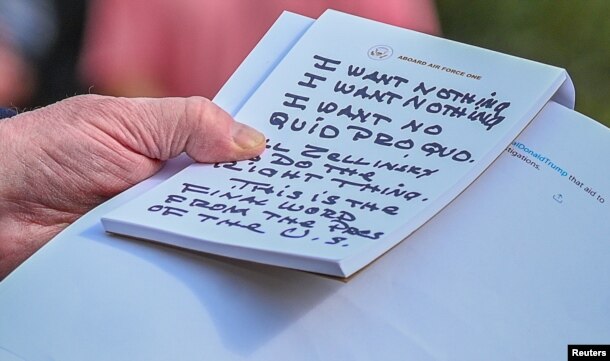 ABOARD AIR FORCE ONE
I WANT NOTHING
I WANT NOTHING
I WANT NO
QUID PRO QUO.
ZELLINSKY
TO DO THE
RIGHT THING.
THIS IS THE
FINAL WORD
FROM THE PRES
OF THE U.S.
alDonaldTrump that aid to
stigations.
Reuters